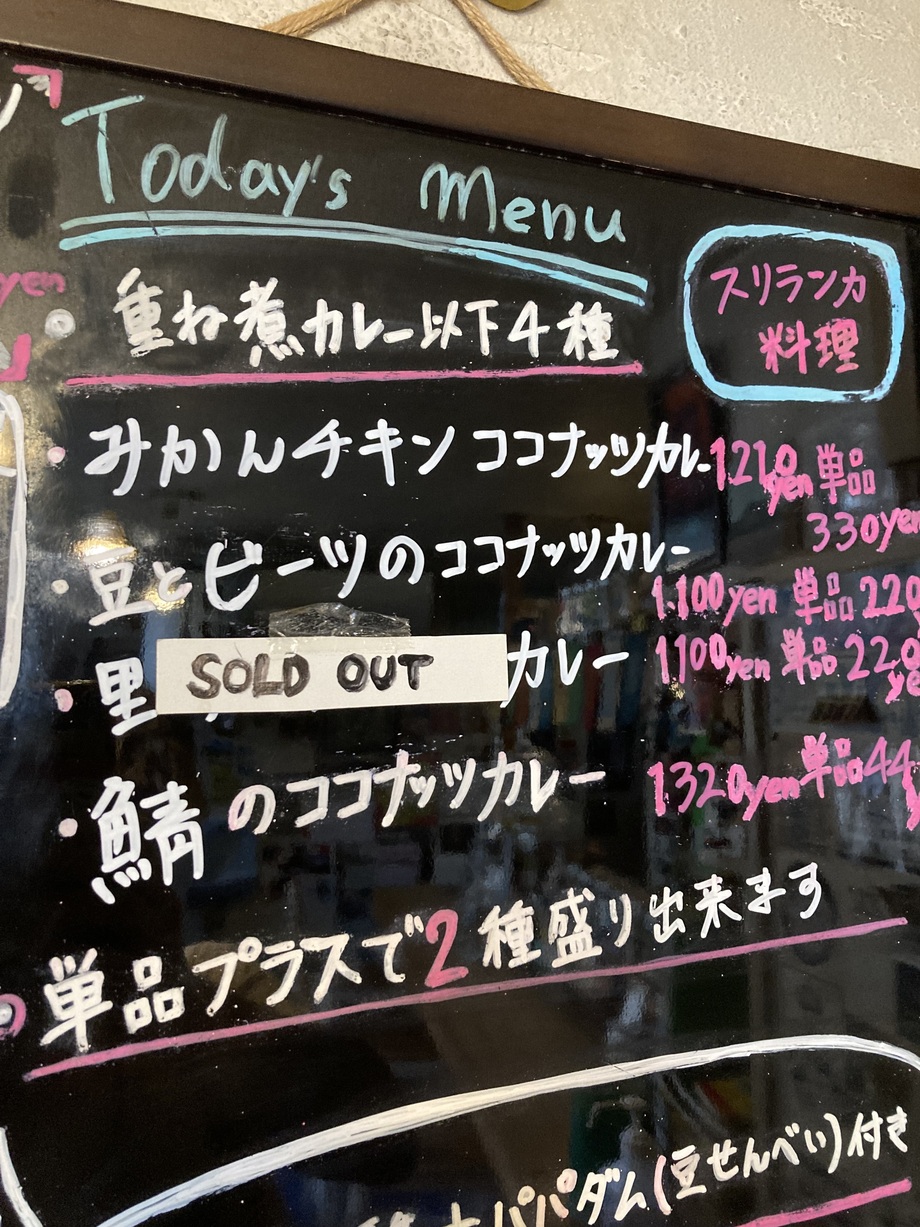 Today's Menu
yen
重ね煮カレー以下4種
スリランカ
料理
・みかんチキンココナッツカレー 1210yen 単品
330yen
・豆とビーツのココナッツカレー
1.100yen 単品220
・里 SOLD OUT カレー 1100yen 単品220ye
・鯖のココナッツカレー 1320yen単品44
単品プラスで2種盛り出来ます
パパダム(豆せんべい)付き